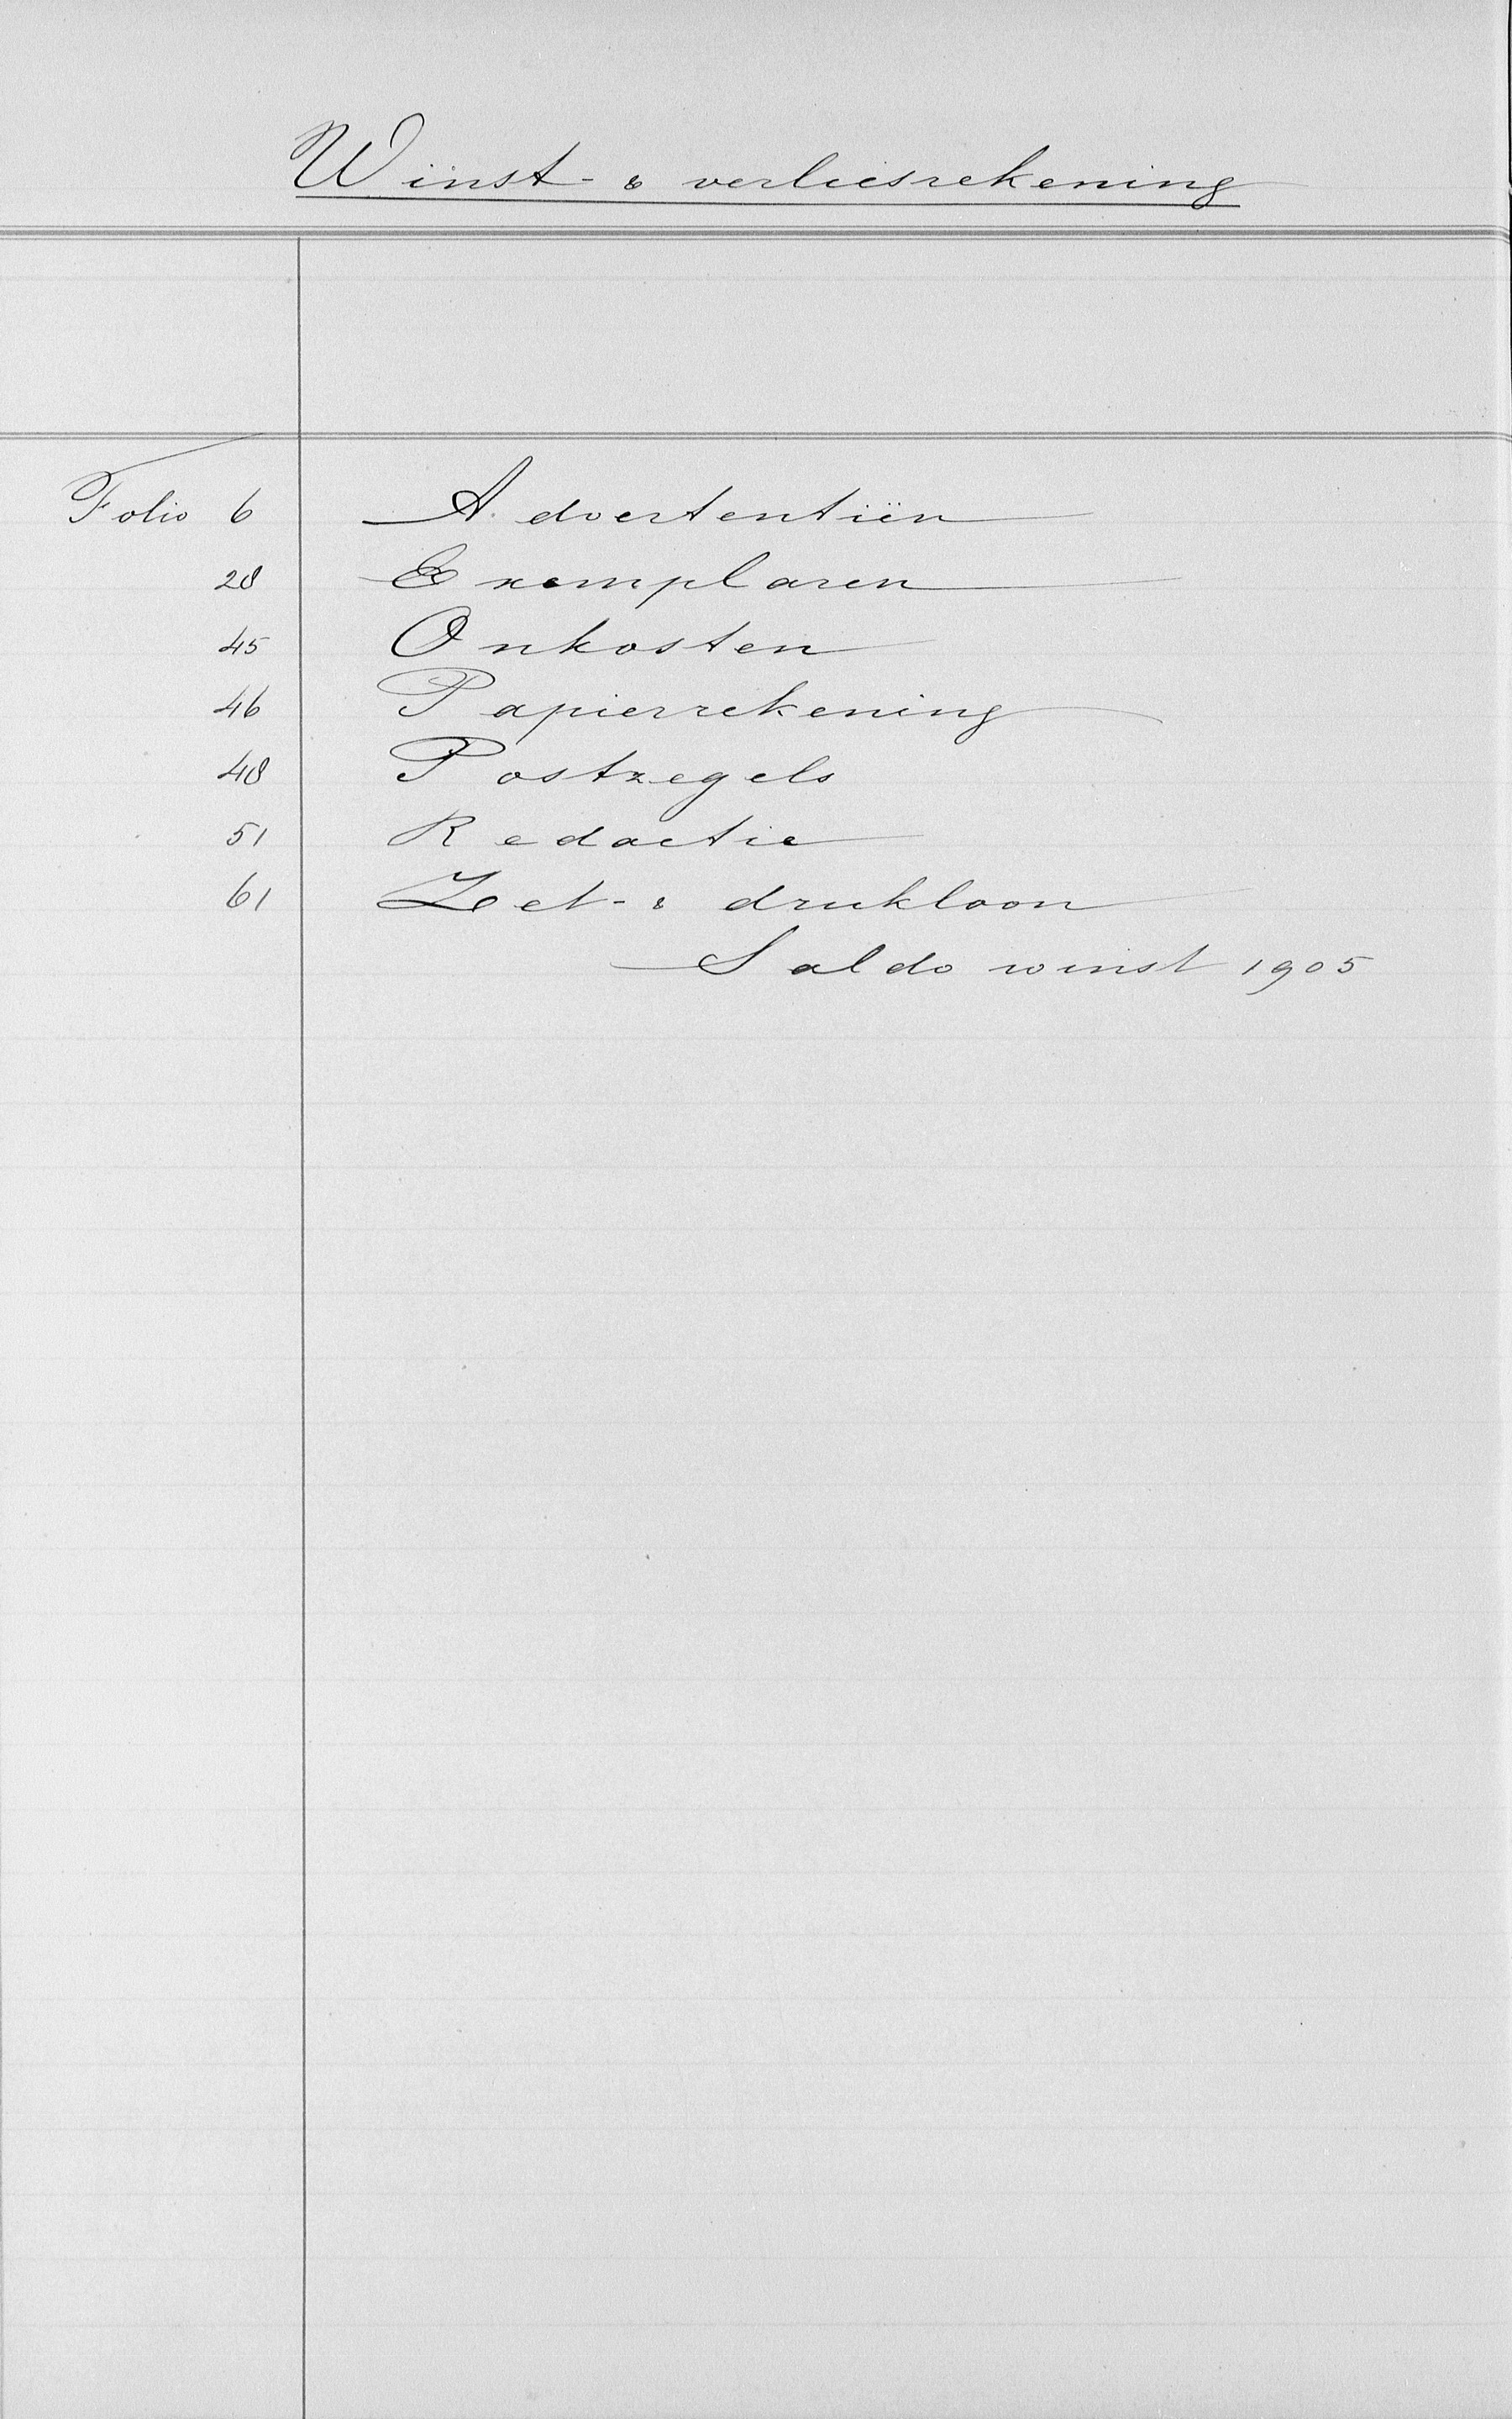 Winst- & verliesrekening
Folio 6 Advertentiën
28 Exemplaren
45 Onkosten
46 Papierrekening
48 Postzegels
51 Redactie
61 Zet- & drukloon
Saldo winst 1905